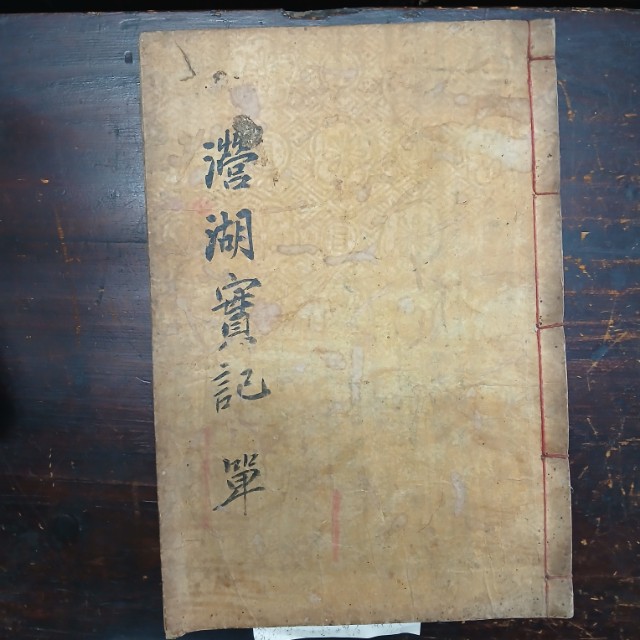 濴湖實記 單